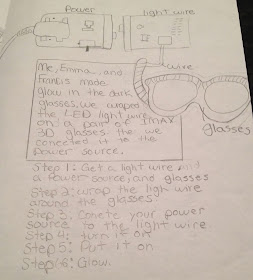 Power
light wire
wire
Me, Emma, and
Francis made
glow in the dark
glasses. we wraped
the LED light wire
on a pair of IMAX
3D glasses. the we
conected it to the
Power source.
glasses
Step 1: Get a light wire and
a Power source, and glasses
Step 2: wrap the ligh wire
around the glasses
Step 3: Conete your power
source to the light wire
Step 4: turn it on
Step 5: Put it on
Step 6: Glow.